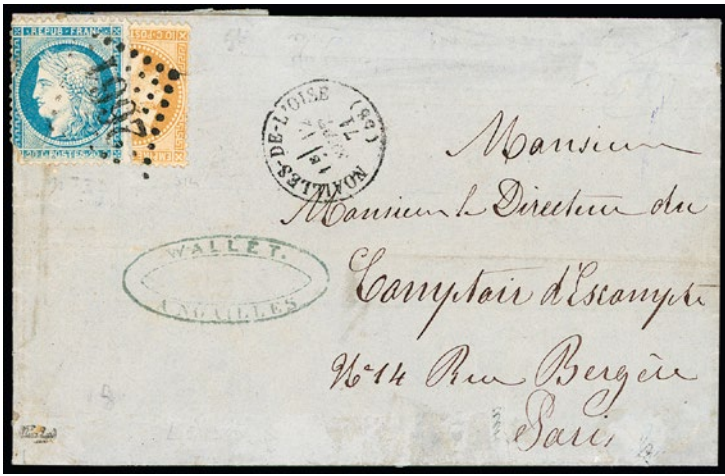 REPUB·FRANC
20 C·POSTES·20 C
10 C·POST
2661
NOAILLES-DE-L'OISE
(58)
71
WALLET.
A NOAILLES
Monsieur
Monsieur le Directeur du
Comptoir d'Escompte
No 14 Rue Bergère
Paris